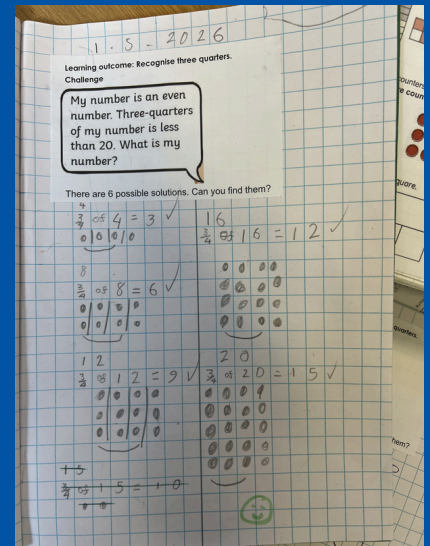 1.5-2026
Learning outcome: Recognise three quarters.
Challenge
My number is an even
number. Three-quarters
of my number is less
than 20. What is my
number?
There are 6 possible solutions. Can you find them?
4
3/4 of 4 = 3 ✓
8
3/4 of 8 = 6 ✓
12
3/4 of 12 = 9 ✓
15
3/4 of 15 = 10
16
3/4 of 16 = 12 ✓
20
3/4 of 20 = 15 ✓
counters
quare.
quarters.
hem?